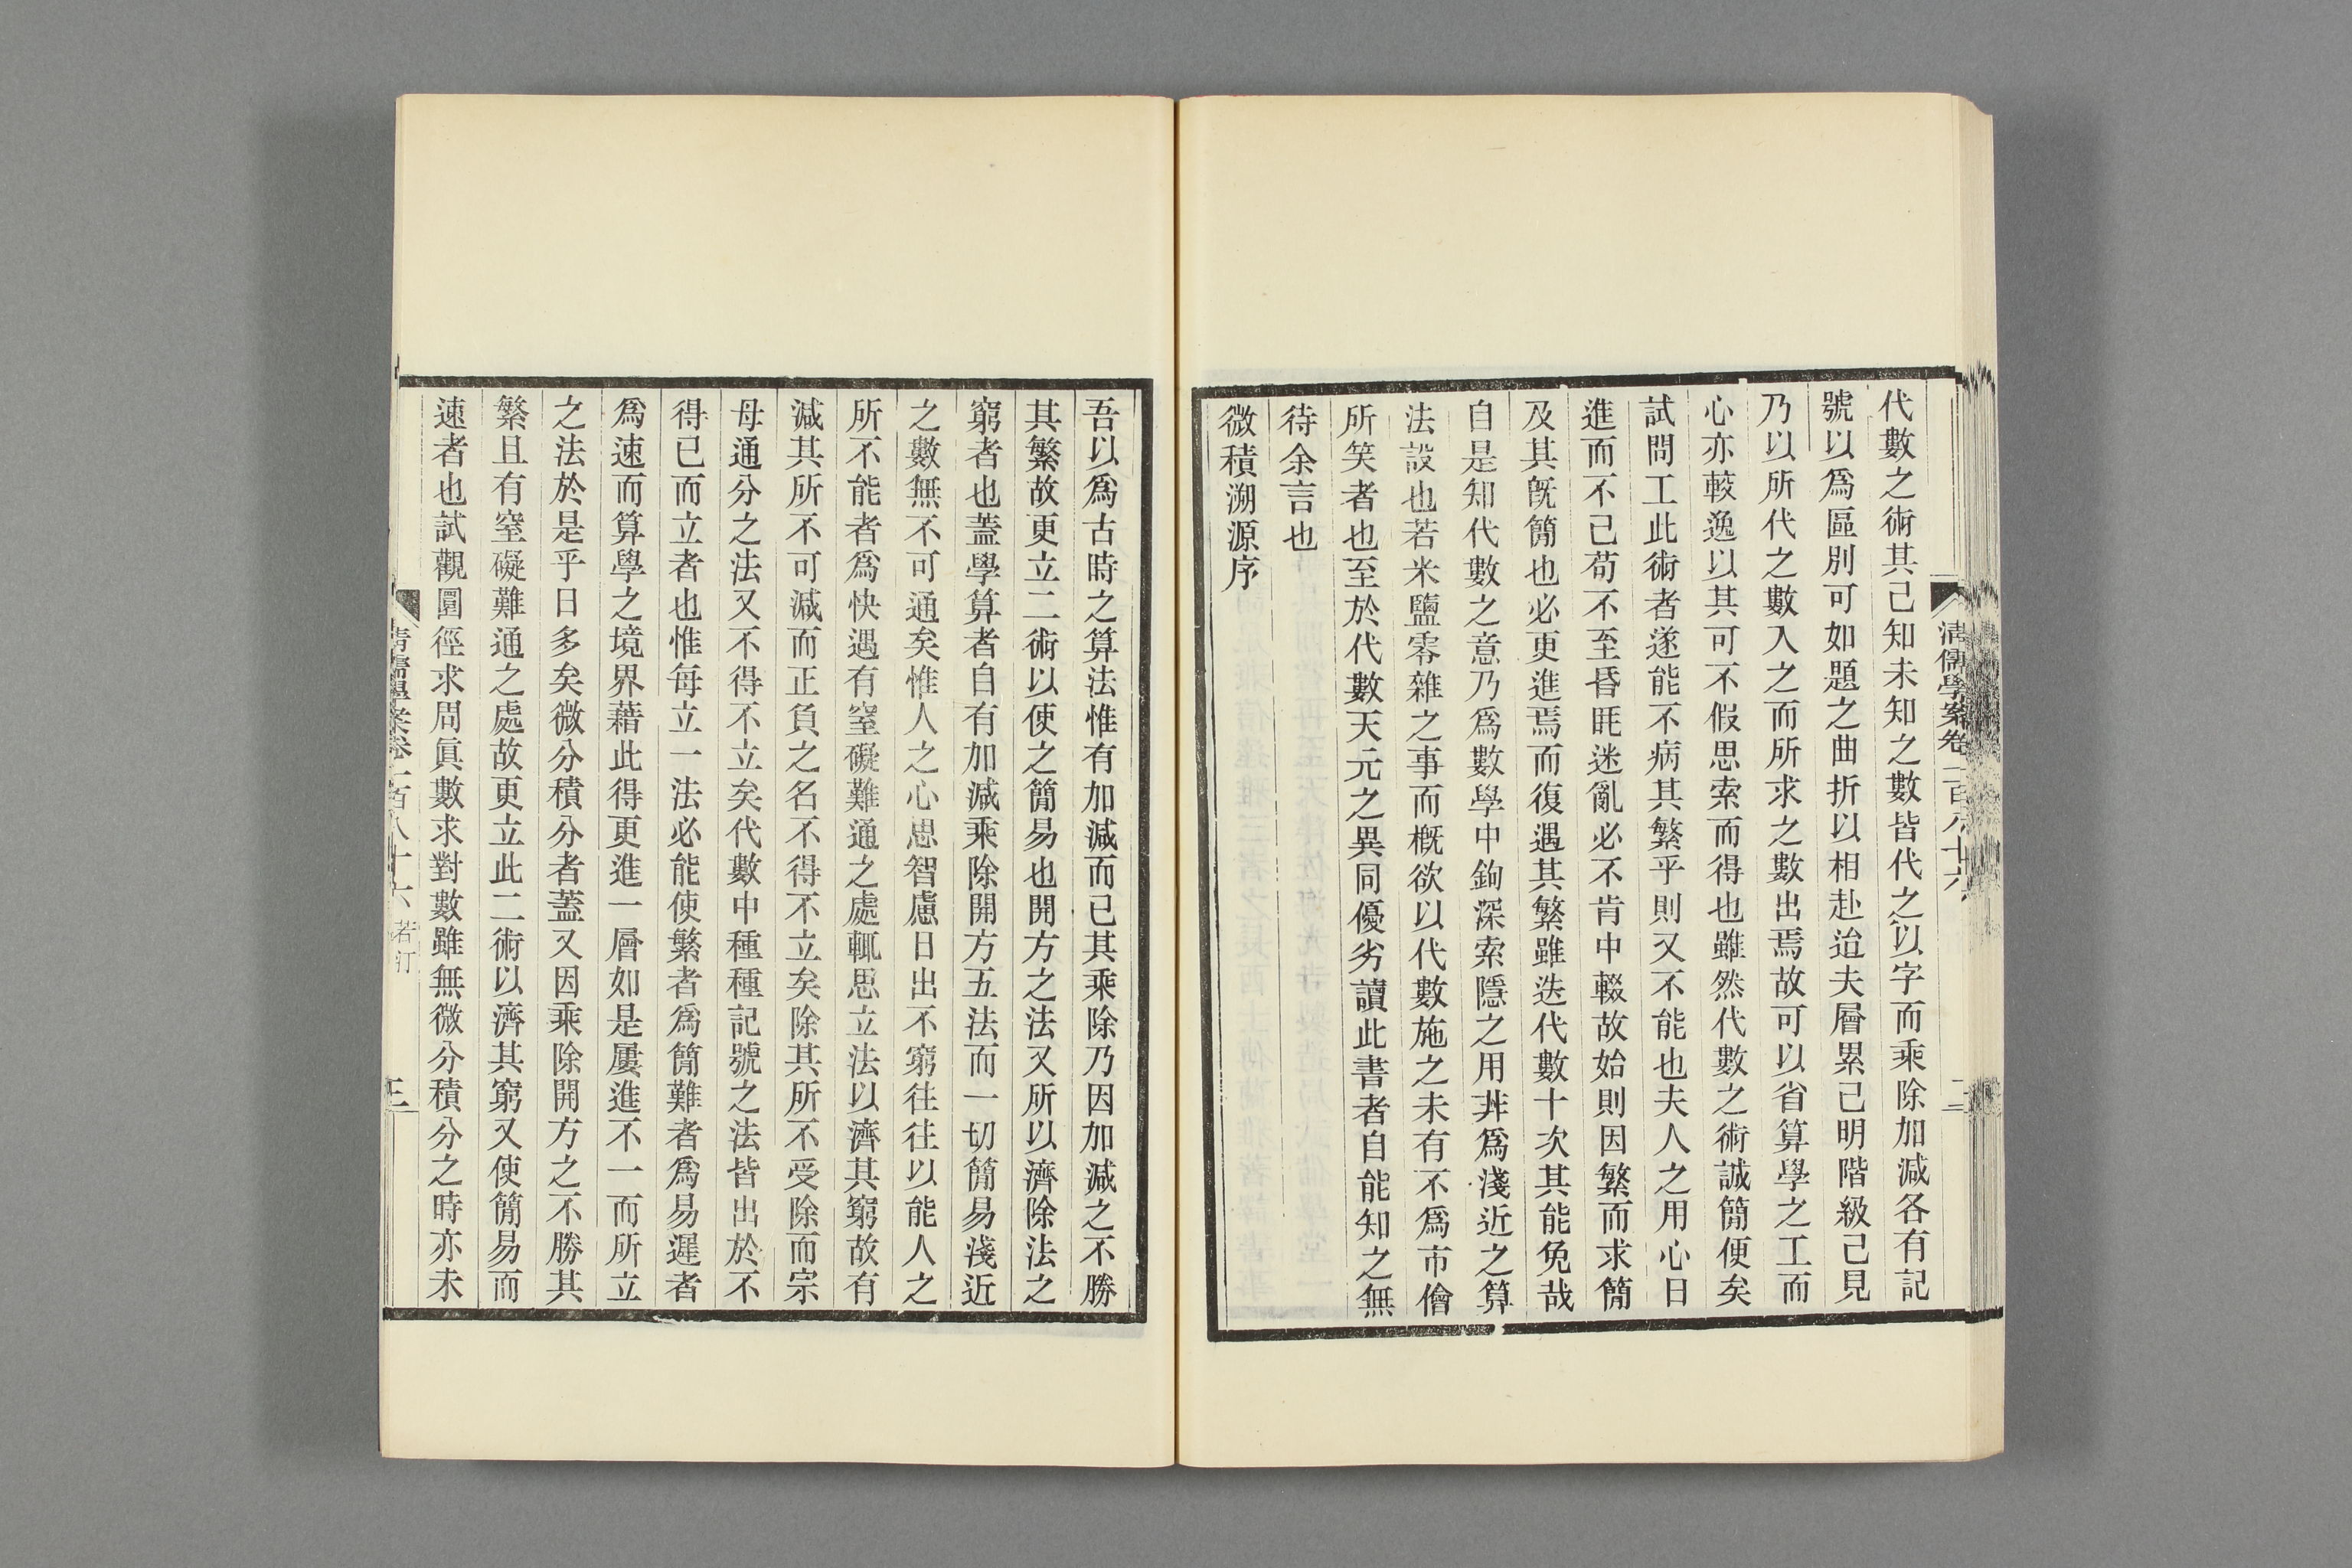 清儒學案卷一百八十六
二
代數之術其己知未知之數皆代之以字而乘除加減各有記
號以爲區別可如題之曲折以相赴迨夫層累己明階級己見
乃以所代之數入之而所求之數出焉故可以省算學之工而
心亦較逸以其可不假思索而得也雖然代數之術誠簡便矣
試問工此術者遂能不病其繁乎則又不能也夫人之用心日
進而不己苟不至昏眊迷亂必不肯中輟故始則因繁而求簡
及其旣簡也必更進焉而復遇其繁雖迭代數十次其能免哉
自是知代數之意乃爲數學中鉤深索隱之用非爲淺近之算
法設也若米鹽零雜之事而概欲以代數施之未有不爲市儈
所笑者也至於代數天元之異同優劣讀此書者自能知之無
待余言也
微積溯源序
吾以爲古時之算法惟有加減而已其乘除乃因加減之不勝
其繁故更立二術以使之簡易也開方之法又所以濟除法之
窮者也蓋學算者自有加減乘除開方五法而一切簡易淺近
之數無不可通矣惟人之心思智慮日出不窮往往以能人之
所不能者爲快遇有窒礙難通之處輒思立法以濟其窮故有
減其所不可減而正負之名不得不立矣除其所不受除而宗
母通分之法又不得不立矣代數中種種記號之法皆出於不
得已而立者也惟每立一法必能使繁者爲簡難者爲易遲者
爲速而算學之境界藉此得更進一層如是屢進不一而所立
之法於是乎日多矣微分積分者蓋又因乘除開方之不勝其
繁且有窒礙難通之處故更立此二術以濟其窮又使簡易而
速者也試觀圓徑求周眞數求對數雖無微分積分之時亦未
清儒學案卷一百八十六
三